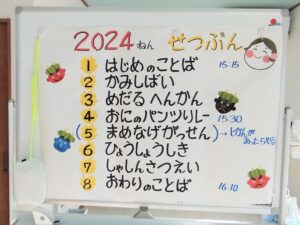 2024 ねん せつぶん
1 はじめのことば 15:15
2 かみしばい
3 めだる へんかん
4 おにのパンツリレー 15:30
(5 まめなげがっせん) → じかんが あまったらやる
6 ひょうしょうしき
7 しゃしんさつえい
8 おわりのことば 16:10